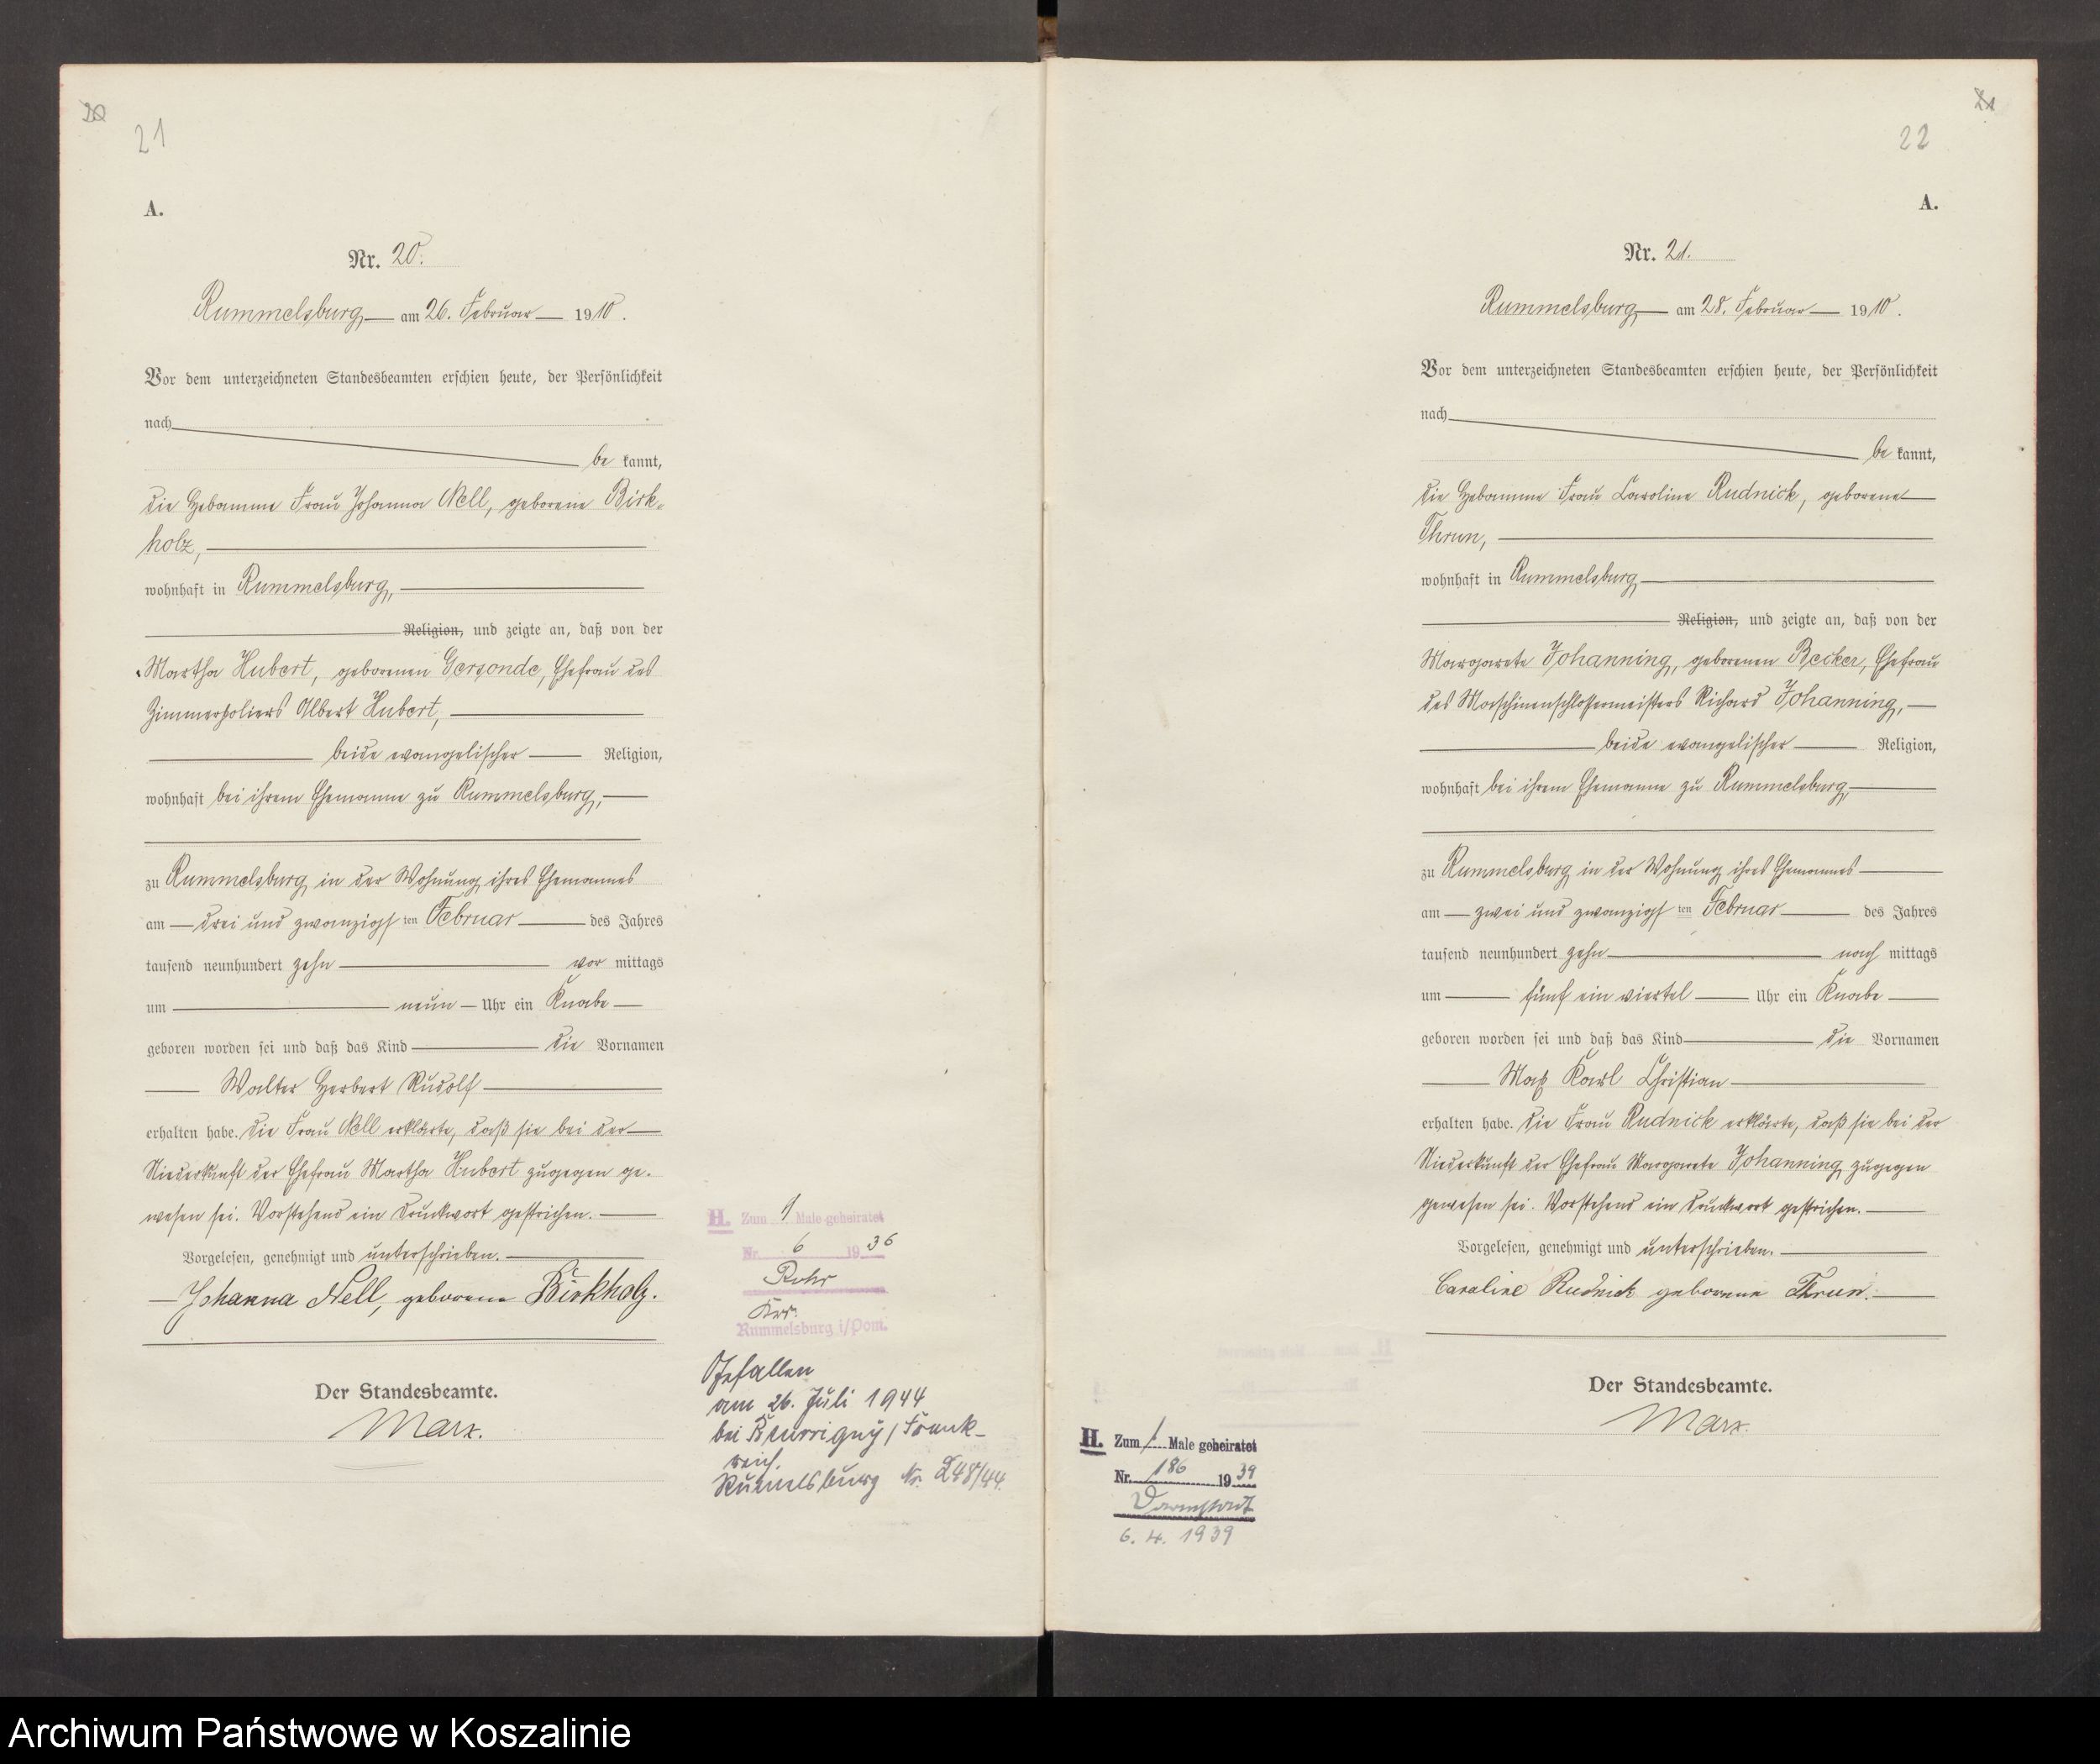 20
21
A.
Nr. 20.
Rummelsburg, am 26. Februar 1910.
Vor dem unterzeichneten Standesbeamten erschien heute, der Persönlichkeit
nach
be kannt,
die Hebamme Frau Johanna Nell, geborene Birk-
holz,
wohnhaft in Rummelsburg,
Religion, und zeigte an, daß von der
Martha Hubert, geborenen Gersonde, Ehefrau des
Zimmerpoliers Albert Hubert,
beide evangelischer Religion,
wohnhaft bei ihrem Ehemanne zu Rummelsburg,
zu Rummelsburg in der Wohnung ihres Ehemannes
am drei und zwanzigsten Februar des Jahres
tausend neunhundert zehn vor mittags
um neun Uhr ein Knabe
geboren worden sei und daß das Kind die Vornamen
Walter Herbert Rudolf
erhalten habe. Die Frau Nell erklärte, daß sie bei der
Niederkunft der Ehefrau Martha Hubert zugegen ge-
wesen sei. Vorstehend ein Druckwort gestrichen.
Vorgelesen, genehmigt und unterschrieben.
Johanna Nell, geborene Birkholz.
Der Standesbeamte.
Marx.
H. Zum 1 Male geheiratet
Nr. 6 1936
Rohr
Krs.
Rummelsburg i/Pom.
Gefallen
am 26. Juli 1944
bei / Frank-
reich.
Rummelsburg Nr. 248/44.
21
22
A.
Nr. 21.
Rummelsburg, am 28. Februar 1910.
Vor dem unterzeichneten Standesbeamten erschien heute, der Persönlichkeit
nach
be kannt,
die Hebamme Frau Caroline Rudnick, geborene
Thrun,
wohnhaft in Rummelsburg
Religion, und zeigte an, daß von der
Margarete Johanning, geborenen Becker, Ehefrau
des Maschinenschlossermeisters Richard Johanning,
beide evangelischer Religion,
wohnhaft bei ihrem Ehemanne zu Rummelsburg,
zu Rummelsburg in der Wohnung ihres Ehemannes
am zwei und zwanzigsten Februar des Jahres
tausend neunhundert zehn nach mittags
um fünf ein viertel Uhr ein Knabe
geboren worden sei und daß das Kind die Vornamen
Max Karl Christian
erhalten habe. Die Frau Rudnick erklärte, daß sie bei der
Niederkunft der Ehefrau Margarete Johanning zugegen
gewesen sei. Vorstehend ein Druckwort gestrichen.
Vorgelesen, genehmigt und unterschrieben.
Caroline Rudnick geborene Thrun.
Der Standesbeamte.
Marx.
H. Zum 1. Male geheiratet
Nr. 186 1939
Darmstadt
6. 4. 1939
Archiwum Państwowe w Koszalinie